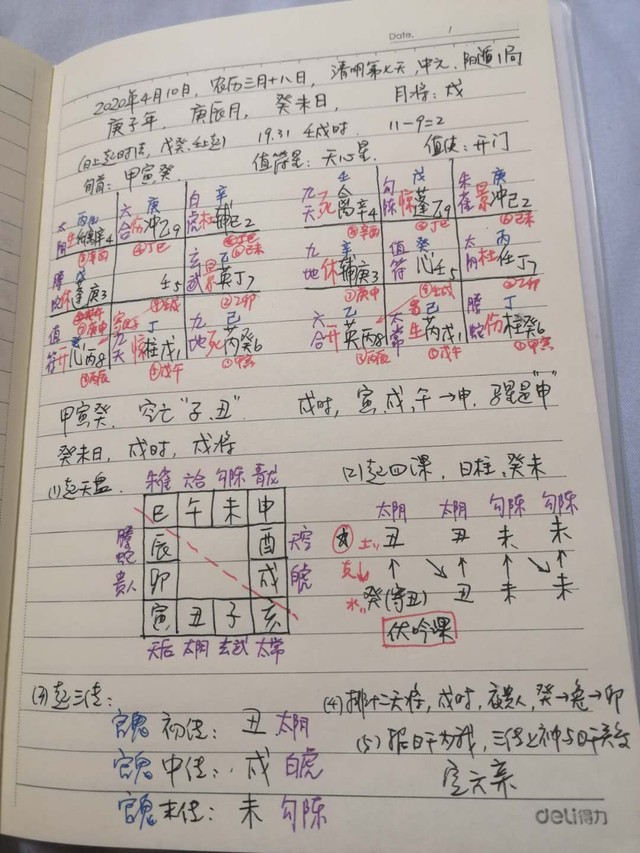 Date. 1
2020年4月10日, 农历三月十八日, 清明第七天, 中元, 阳遁1局
庚子年, 庚辰月, 癸未日, 月将: 戌
(日上起时法, 戊癸壬起) 19.31 壬戌时. 11-9=2
旬首: 甲寅癸. 值符星: 天心星. 值使: 开门
太阴 六合 庚 白虎 辛
伤冲乙9 杜辅己2
④丁巳
螣蛇 戊 玄武
休蓬庚3 壬5 景英丁7
②乙卯
值符 丁 九地 己
开心丙8 九天 惊柱戊1 死芮癸6
③丙辰 ⑤戊午 ①甲寅
九天 壬 勾陈 戊 朱雀 庚
死禽辛4 惊蓬乙9 景冲己2
⑧辛酉 ④丁巳 ⑥己未
九地 辛 值符 癸 太阴 丙
休辅庚3 心壬5 杜任丁7
⑦庚申 ②乙卯
六合 乙 太常 己 螣蛇 丁
开英丙8 生芮戊1 伤柱癸6
③丙辰 ⑤戊午 ①甲寅
甲寅癸. 空亡"子、丑" 戌时, 寅、戌、午→申. 驿马是"申"
癸未日, 戌时, 戌将
(1)起天盘. 朱雀 六合 勾陈 青龙 (2)起四课, 日柱: 癸未
巳 午 未 申 太阴 太阴 勾陈 勾陈
螣蛇 辰 酉 天空 土 丑 丑 未 未
贵人 卯 戌 白虎 克 ↑ ↘ ↑ ↘ ↑
寅 丑 子 亥 水 癸(寄丑) 丑 未 未
天后 太阴 玄武 太常 伏吟课
(3)起三传: (4)排十二天将, 戌时, 夜贵人, 癸→兔→卯
官鬼 初传: 丑 太阴 (5)据日干为我, 三传上神与日干关系
官鬼 中传: 戌 白虎 定六亲
官鬼 末传: 未 勾陈
deli得力